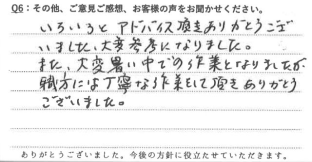 Q6：その他、ご意見ご感想、お客様の声をお聞かせください。
いろいろと アドバイス頂きありがとうござ
いました。大変参考になりました。
また、大変暑い中での作業となりましたが
職方には丁寧な作業をして頂きありがとう
ございました。
ありがとうございました。今後の方針に役立たせていただきます。